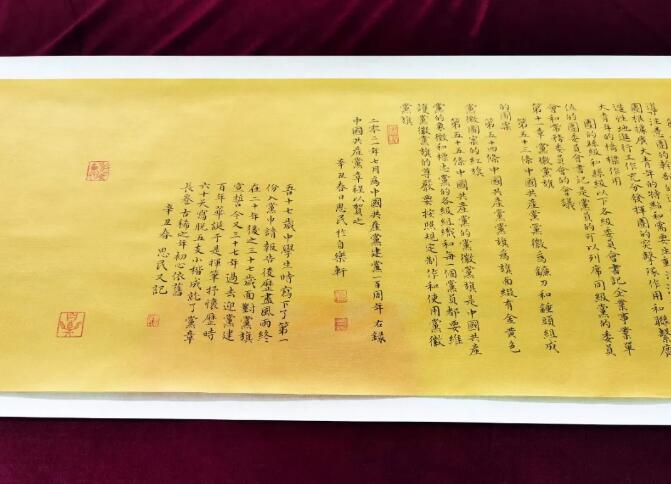 導注意團的幹部
團根據廣大青年的特點和需要
造性地進行工作充分發揮團的突擊隊作用和聯繫廣
大青年的橋樑作用
團的縣級和縣級以下各級委員會書記企業事業單
位的團委員會書記是黨員的可以列席同級黨的委員
會和常務委員會的會議
第十一章黨徽黨旗
第五十三條中國共產黨黨徽為鐮刀和錘頭組成
的圖案
第五十四條中國共產黨黨旗為旗面綴有金黃色
黨徽圖案的紅旗
第五十五條中國共產黨的黨徽黨旗是中國共產
黨的象徵和標志黨的各級組織和每一個黨員都要維
護黨徽黨旗的尊嚴要按照規定制作和使用黨徽
黨旗
二零二一年七月為中國共產黨建黨一百周年右錄
中國共產黨章程以賀之
辛丑春日思民於自樂軒
吾十七歲中學生時寫下了第一
份入黨申請報告後歷盡風雨終
在二十年後之三十七歲面對黨旗
宣誓今又三十七年過去迎黨建
百年華誕于是揮筆抒懷歷時
六十天寫脫五支小楷成就了黨章
長卷古稀之年初心依舊
辛丑春思民又記